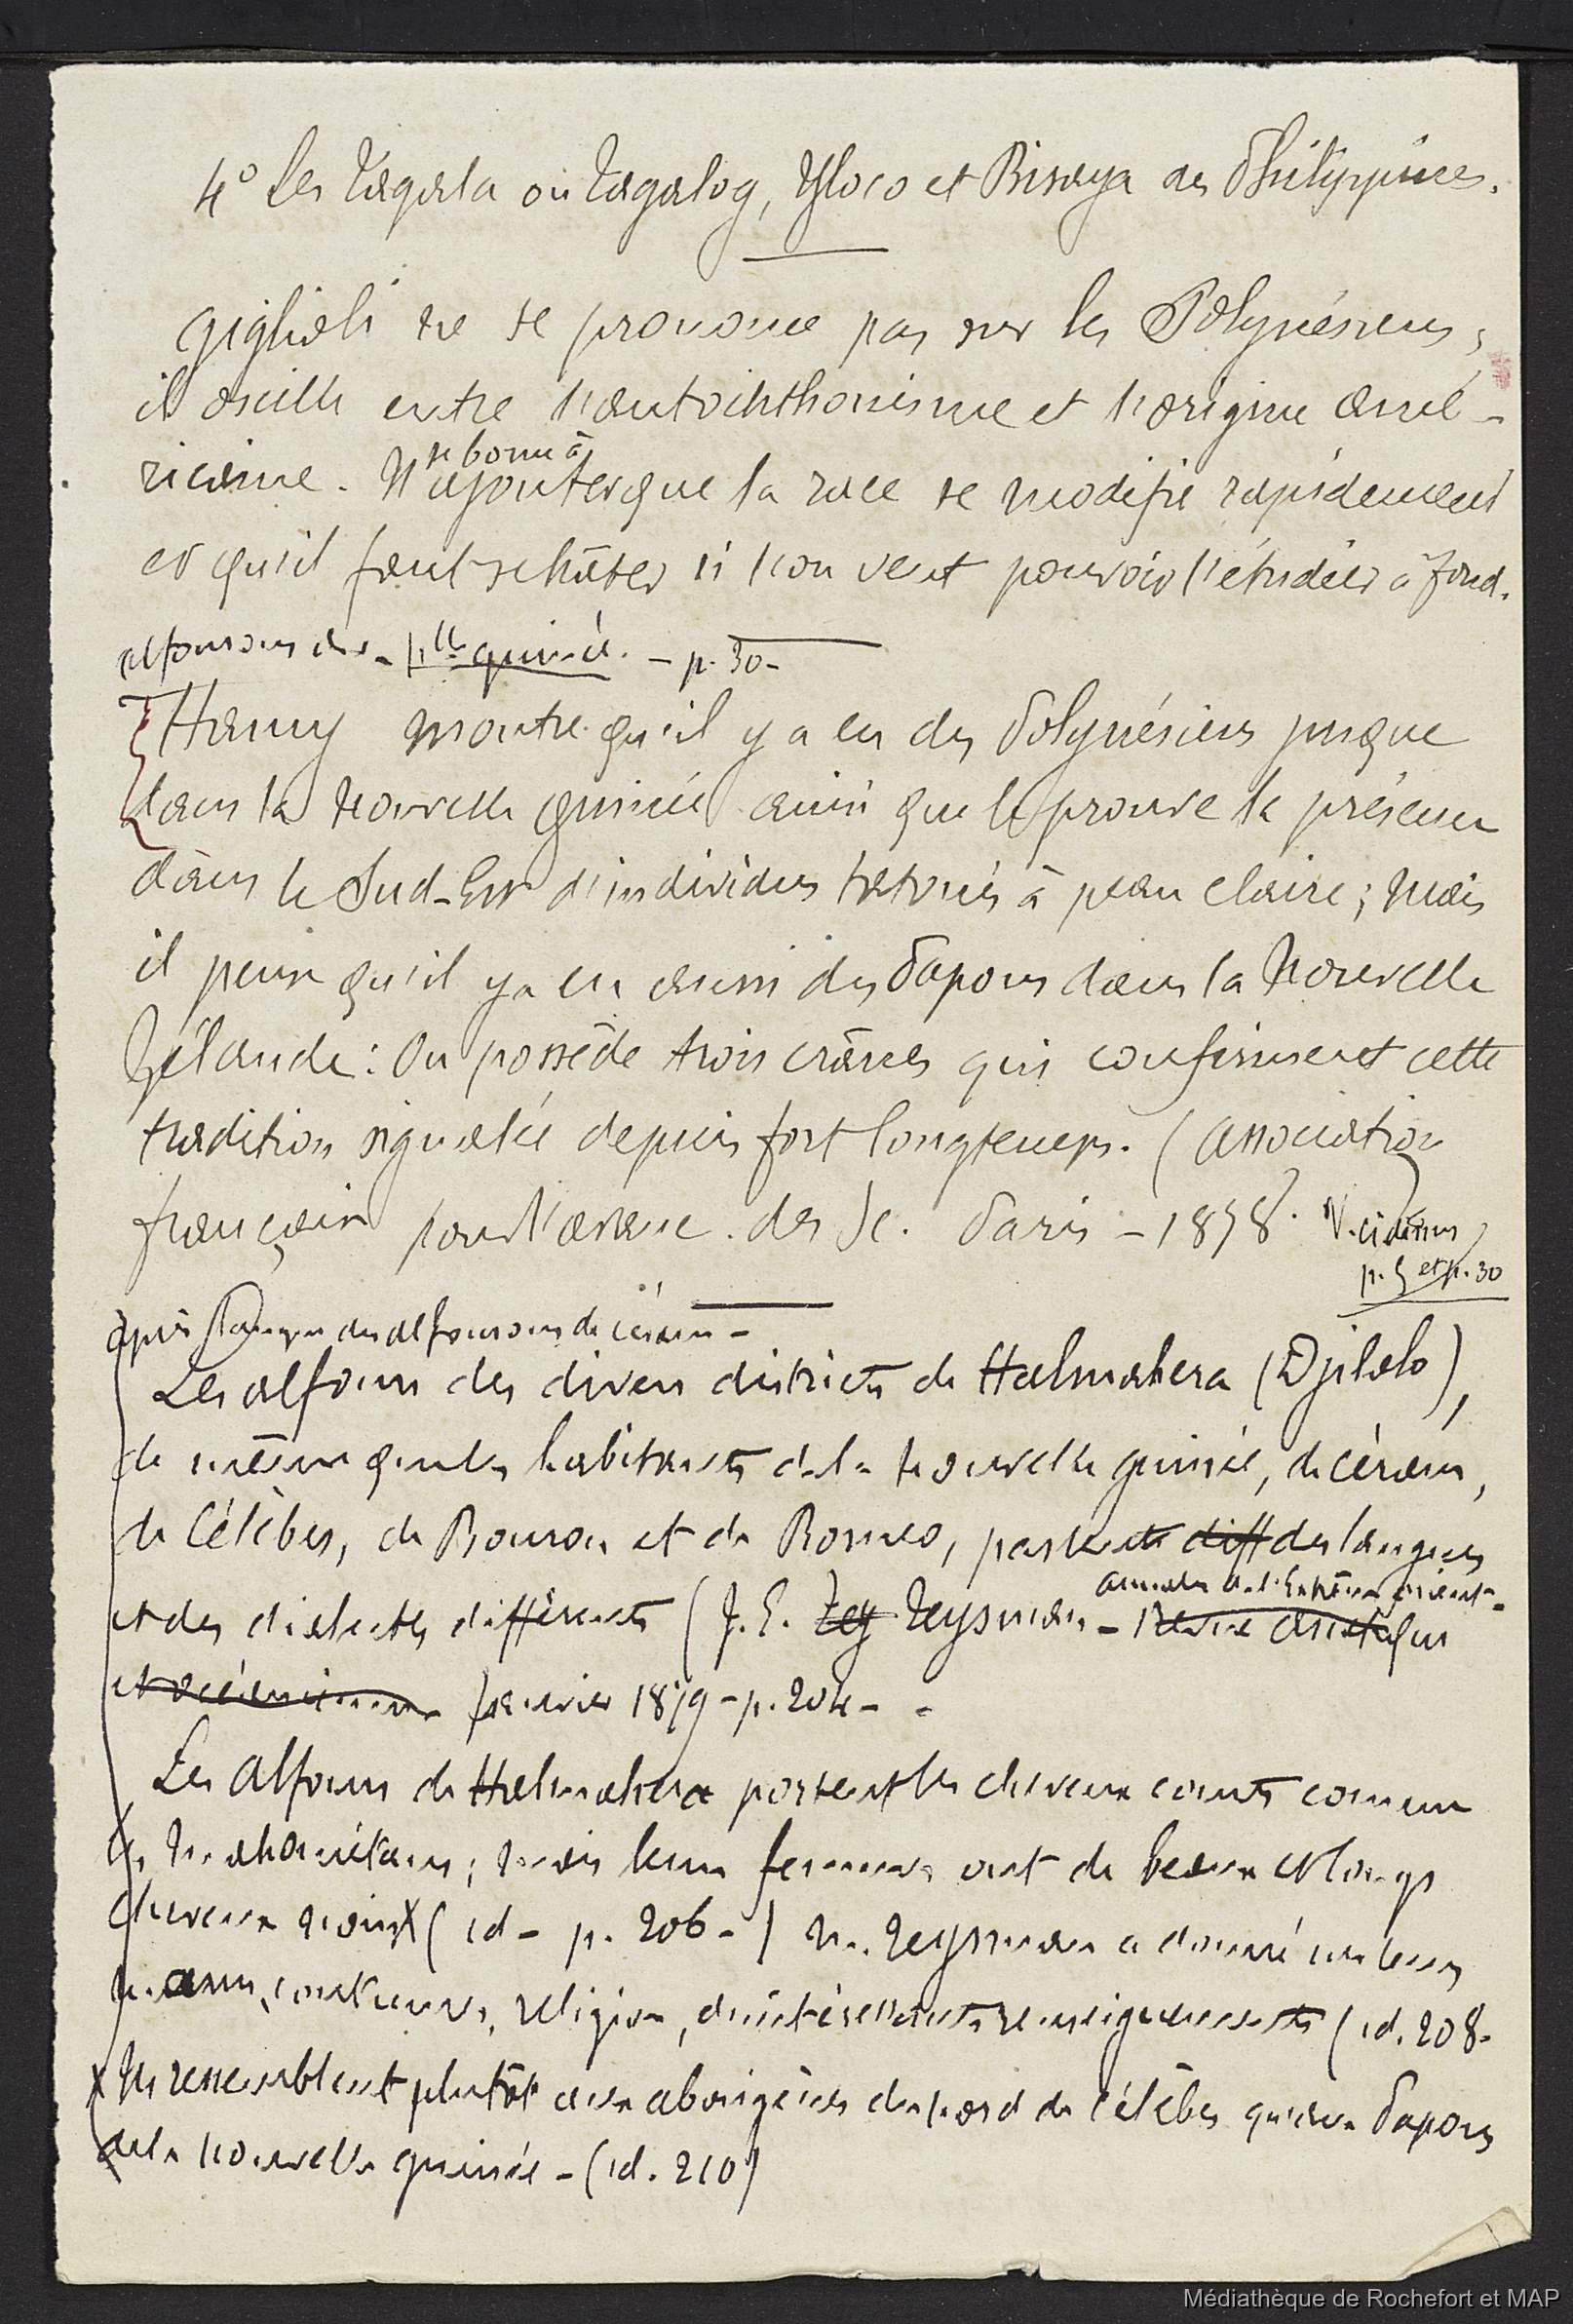 4° Les Tagala ou Tagalog, Yloco et Bisaya des Philippines.
Giglioli ne se prononce pas sur les Polynésiens,
il oscille entre l'autochthonisme et l'origine amé-
ricaine. Il se borne à ajouter que la race se modifie rapidement
et qu'il faut se hâter si l'on veut pouvoir l'étudier à fond.
alfourous de la Nlle guinée. - p. 30-
Hamy montre qu'il y a eu des Polynésiens jusque
dans la Nouvelle guinée ainsi que le prouve la présence
dans le Sud-Est d'individus tatoués à peau claire; mais
il pense qu'il y a eu aussi des Papous dans la Nouvelle
Zélande: On possède trois crânes qui confirment cette
tradition signalée depuis fort longtemps. (Association
française pour l'avanc. des Sc. Paris - 1878. V. ci dessus
p. 5 et p. 30
après langue des alfourous de céram -
Les alfours des divers districts de Halmahera (Djilolo),
de même que les habitants de la Nouvelle guinée, de céram,
de Célèbes, de Bourou et de Borneo, parlent diff des langues
et des dialectes différents (J. E. Tey Teysman - Revue asiatique
annales de l'Extrême orient -
et océanienne Janvier 1879 - p. 204 - -
Les Alfours de Halmahera portent les cheveux courts comme
les mahométans; mais leurs femmes ont de beaux et longs
cheveux noirs X (id - p. 206 -) M. Teysman a donné sur leurs
mœurs, coutumes, religion, d'intéressants renseignements (id. 208-
X Ils ressemblent plutôt aux aborigènes du nord de Célèbes qu'aux Papous
de la Nouvelle guinée - (id. 210)
Médiathèque de Rochefort et MAP